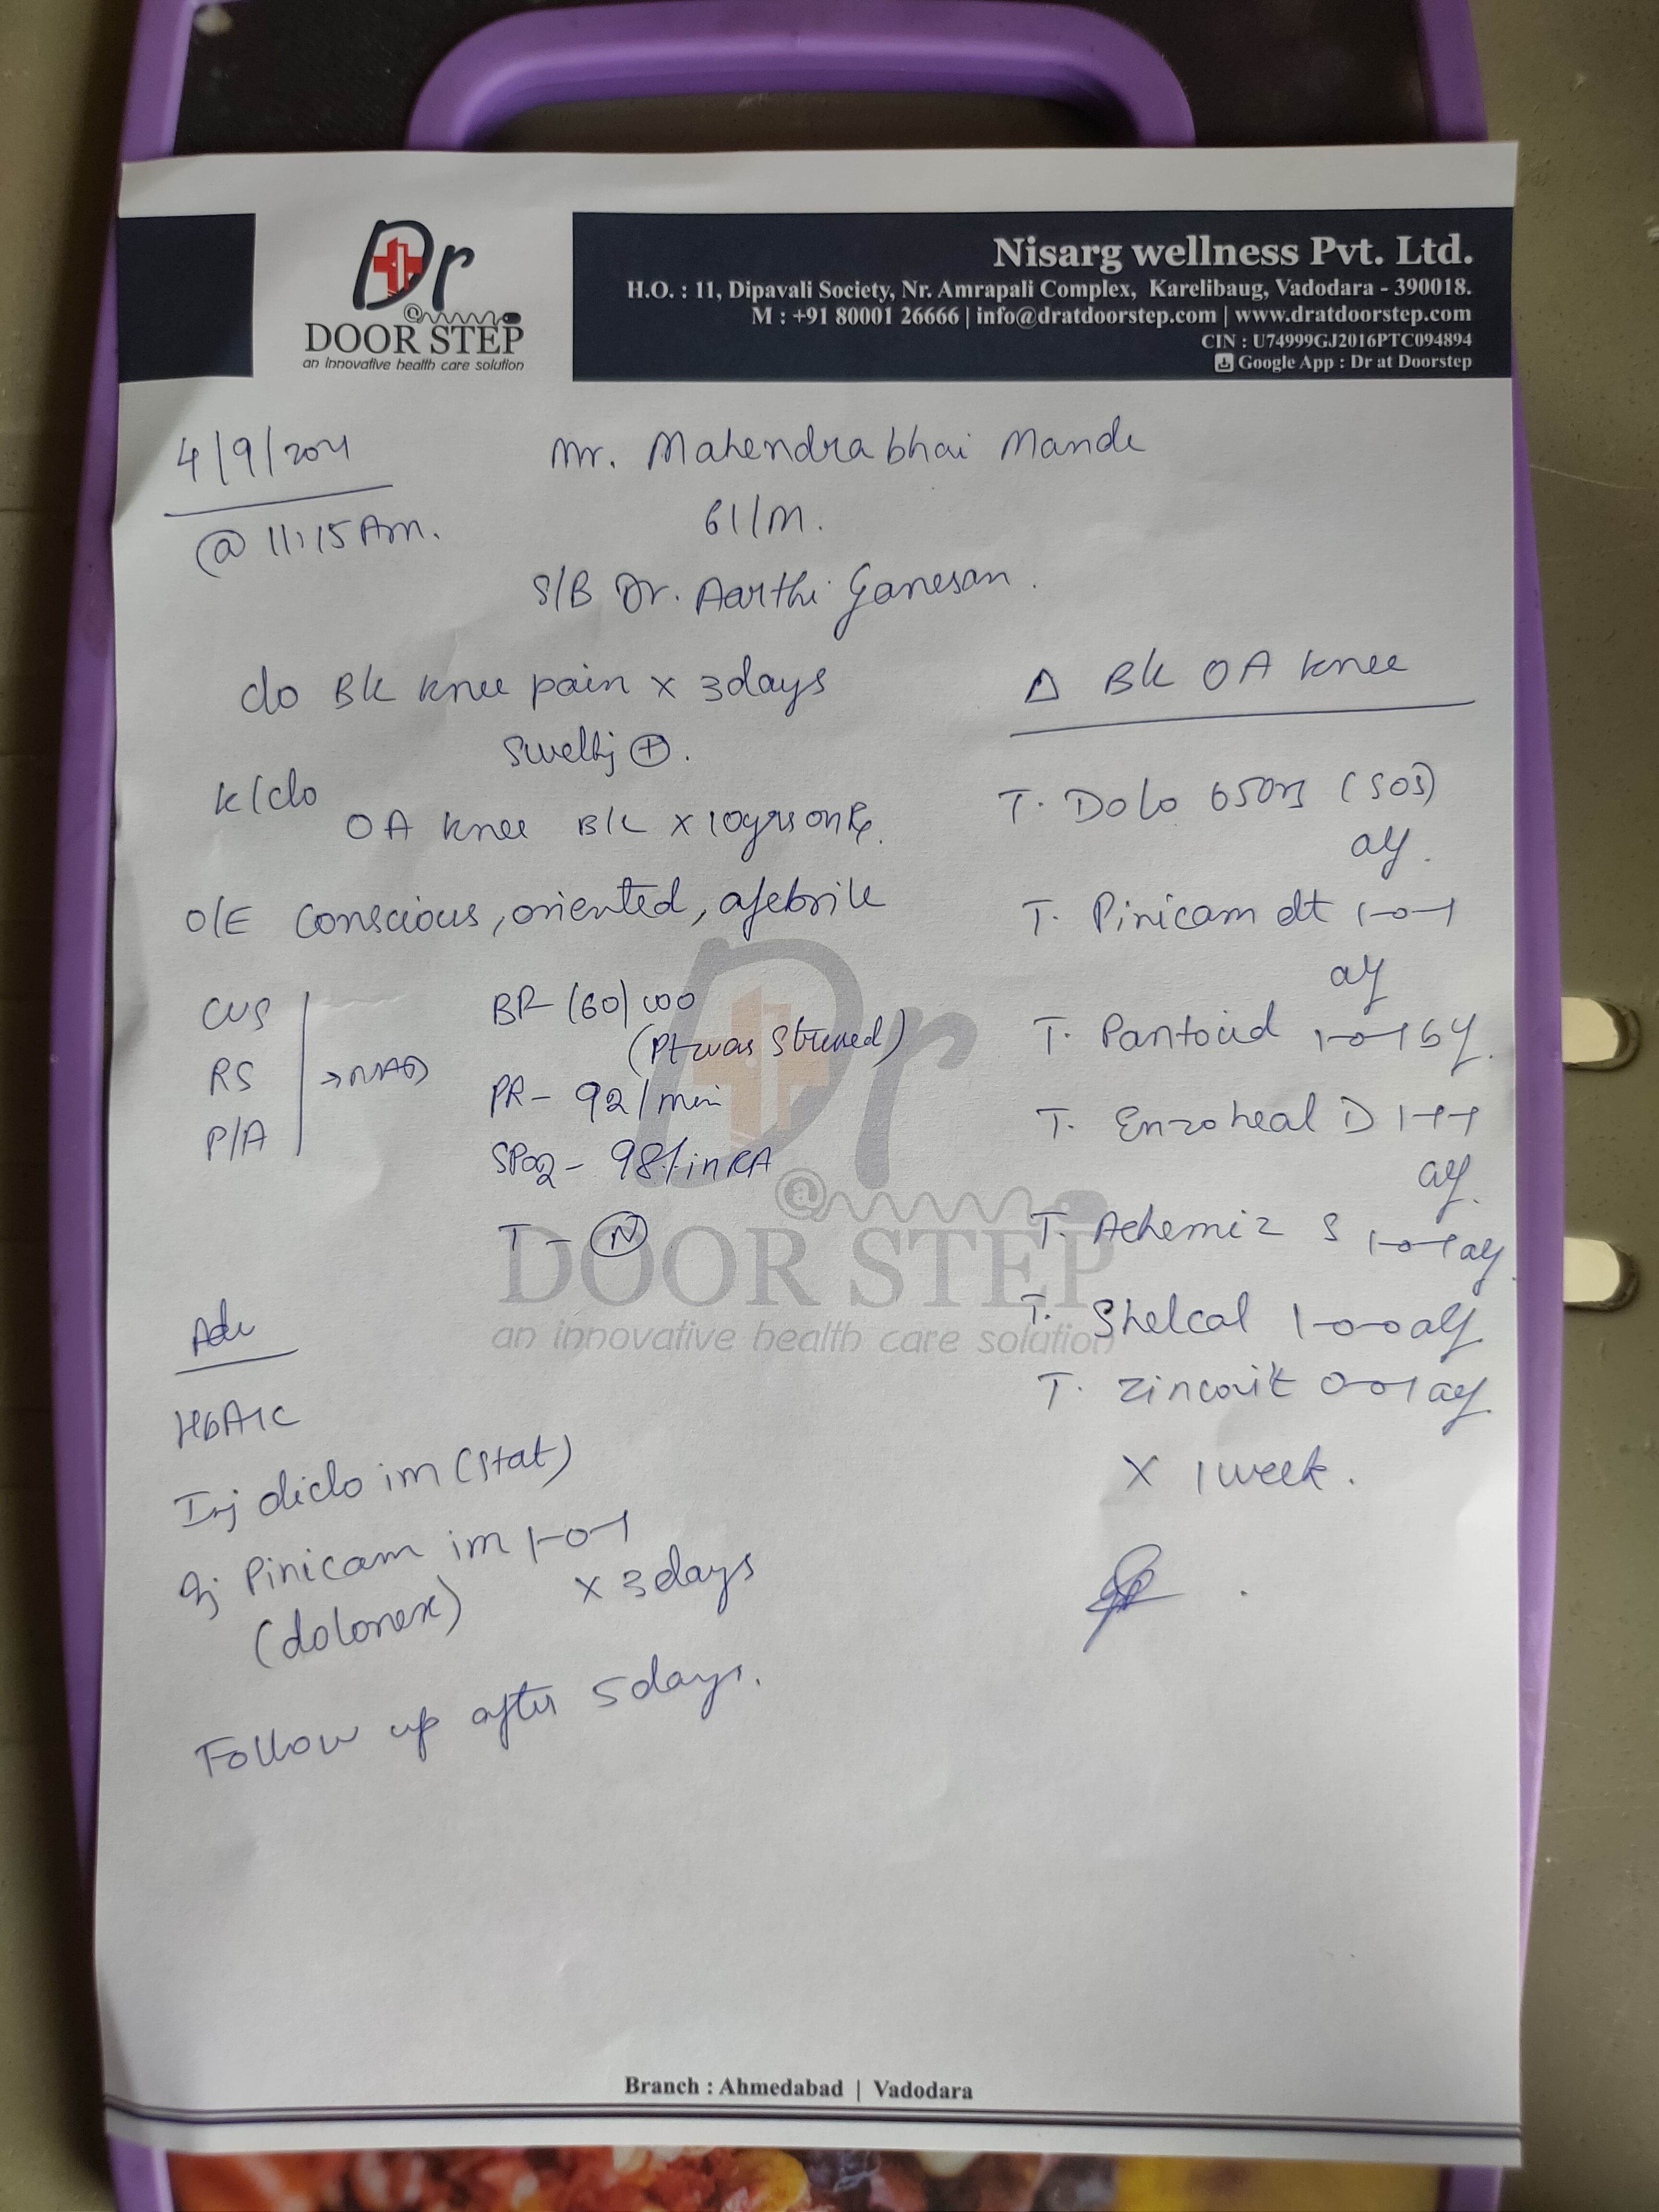 Dr
@
DOOR STEP
an innovative health care solution
Nisarg wellness Pvt. Ltd.
H.O. : 11, Dipavali Society, Nr. Amrapali Complex, Karelibaug, Vadodara - 390018.
M : +91 80001 26666 | info@dratdoorstep.com | www.dratdoorstep.com
CIN : U74999GJ2016PTC094894
Google App : Dr at Doorstep
4/9/2021
@ 11:15 Am.
Mr. Mahendrabhai Mande
61/M.
S/B Dr. Aarthi Ganesan.
c/o B/L knee pain x 3days
swelling +.
k/c/o
OA knee B/L x 10yrs on Rx.
O/E Conscious, oriented, afebrile
CVS
RS → NAD
P/A
BP- 160/100
(Pt was Stressed)
PR- 92/min
SPO2- 98% in RA
T- N
Adv
HbA1c
Inj diclo im (stat)
Inj Pinicam im 1-0-1
(dolonex) x 3days
Follow up after 5days.
Δ B/L OA knee
T. Dolo 650mg (SOS)
T. Pinicam dt 1-0-1
T. Pantocid 1-0-1
T. Enzoheal D 1-1-1
T. S 1-0-1
T. Shelcal 1-0-0
T. zincovit 0-0-1
x 1 week.
Dr
@
DOOR STEP
an innovative health care solution
Branch : Ahmedabad | Vadodara